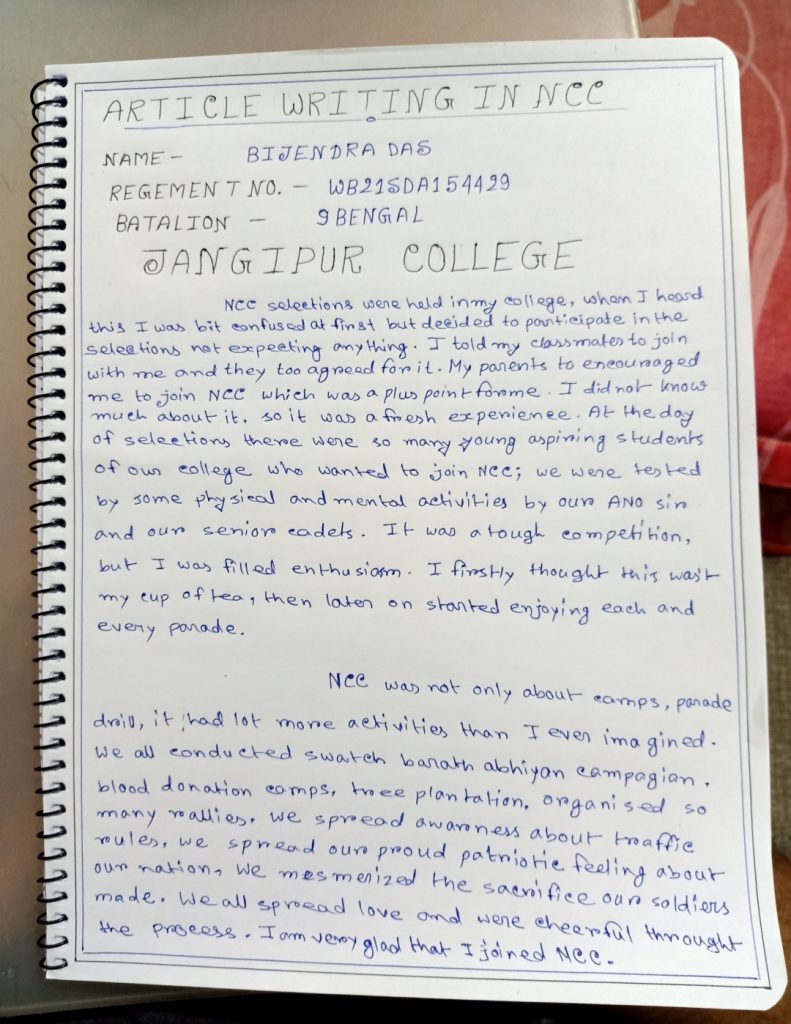 ARTICLE WRITING IN NCC
NAME - BIJENDRA DAS
REGEMENT NO. - WB21SDA154429
BATALION - 9 BENGAL
JANGIPUR COLLEGE
NCC selections were held in my college, when I heard
this I was bit confused at first but decided to participate in the
selections not expecting anything. I told my classmates to join
with me and they too agreed for it. My parents to encouraged
me to join NCC which was a plus point for me. I did not know
much about it, so it was a fresh experience. At the day
of selections there were so many young aspiring students
of our college who wanted to join NCC; we were tested
by some physical and mental activities by our ANO sir
and our senior cadets. It was a tough competition,
but I was filled enthusiasm. I firstly thought this was't
my cup of tea, then later on started enjoying each and
every parade.
NCC was not only about camps, parade
drill, it had lot more activities than I ever imagined.
We all conducted swatch barath abhiyan campagian,
blood donation camps, tree plantation, organised so
many rallies, we spread awarness about traffic
rules, we spread our proud patriotic feeling about
our nation, we mesmerized the sacrifice our soldiers
made. We all spread love and were cheerful throught
the process. I am very glad that I joined NCC.